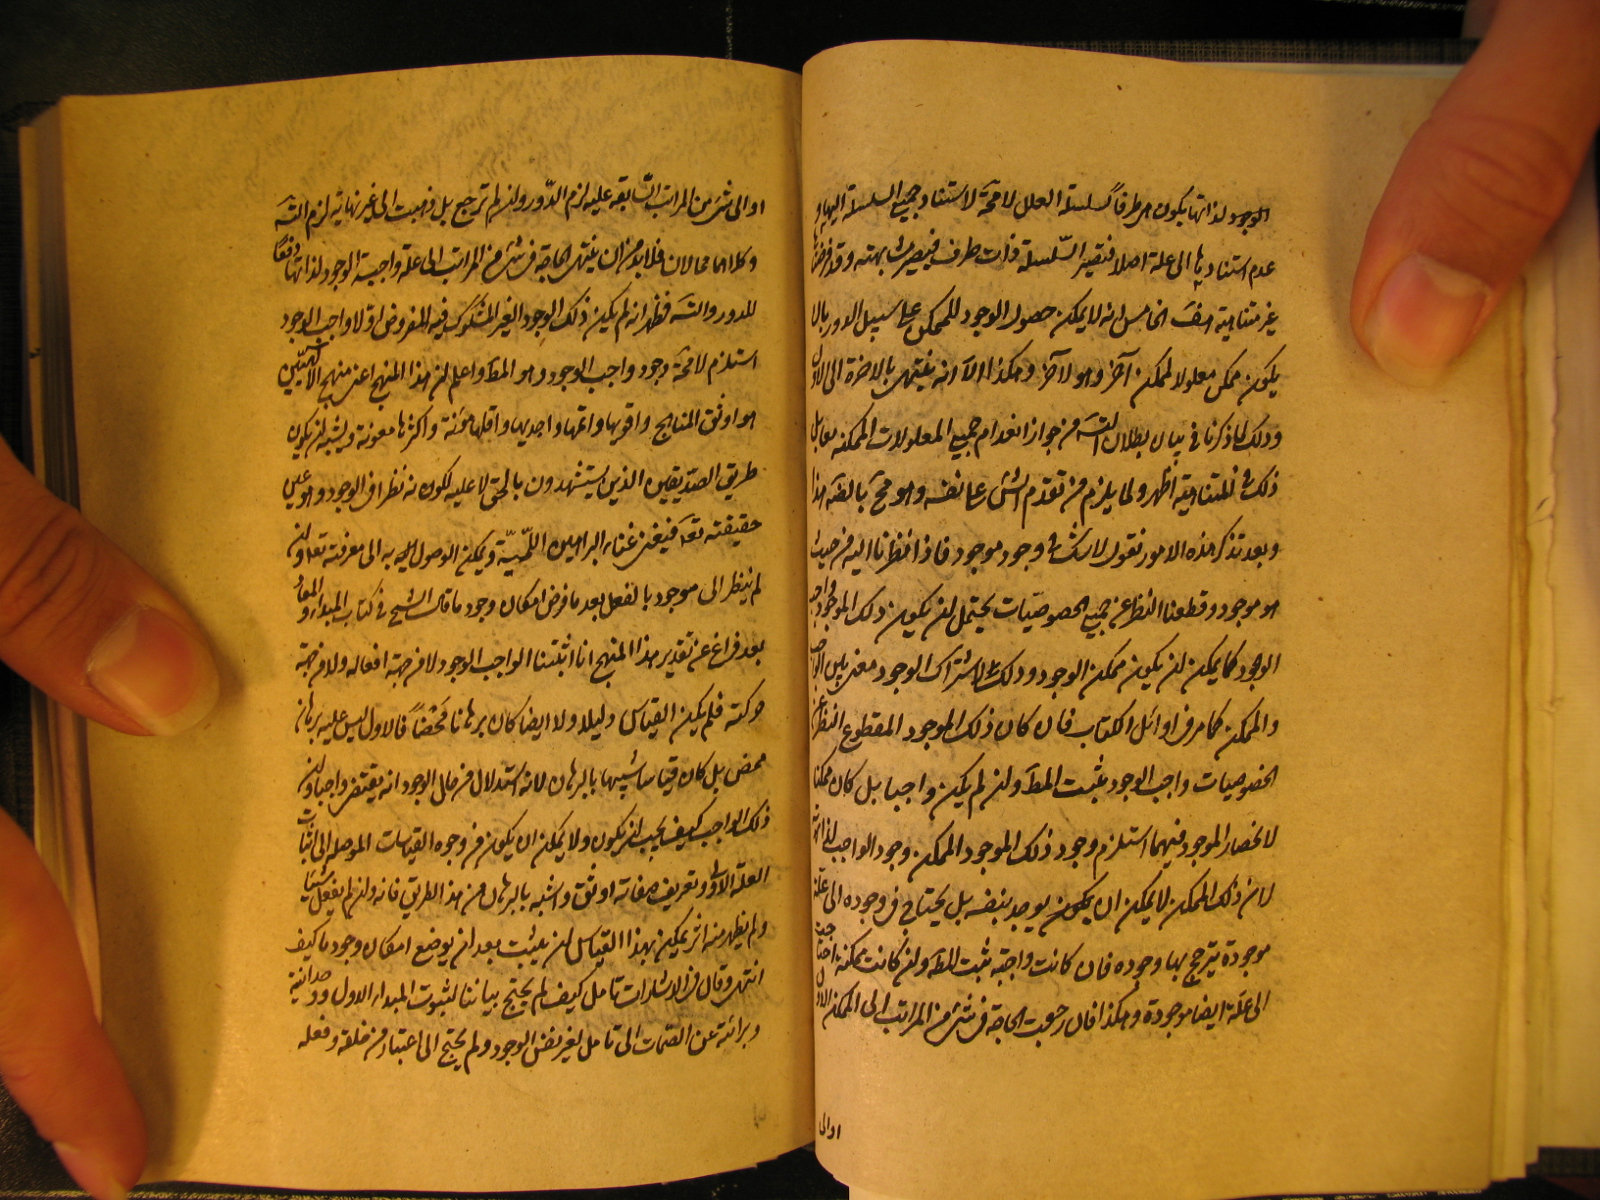 الوجود لذاتها يكون طرفا لسلسلة العلل لا محة لاستناد جميع السلسلة اليها و
عدم استنادها الى علة اصلا فتصير السلسلة ذات طرف فيصير متناهية وقد فرضنا
غير متناهية هف الخامس انه لا يمكن حصول الوجود للممكن على سبيل الدور بان لا
يكون ممكن معلولا لممكن آخر وهو لآخر وهكذا الا انه ينتهى بالاخرة الى الاول
وذلك لما ذكرنا فى بيان بطلان التسه من جواز انعدام جميع المعلولات الممكنة بل
ذلك فى المتناهية اظهر ولما يلزم من تقدم الشئ على نفسه وهو مح بالضه هذا
وبعد تذكر هذه الامور نقول لا شك فى وجود موجود فاذا نظرنا اليه من حيث
هو موجود وقطعنا النظر عن جميع الخصوصيات يحتمل ان يكون ذلك الموجود واجب
الوجود كما يمكن ان يكون ممكن الوجود وذلك لاشتراك الوجود معنى بين الواجب
والممكن كما مر فى اوائل الكتاب فان كان ذلك الموجود المقطوع النظر عن
الخصوصيات واجب الوجود ثبت المط وان لم يكن واجبا بل كان ممكنا
لانحصار الموجود فيهما استلزم وجود ذلك الموجود الممكن وجود الواجب لذاته
لان ذلك الممكن لا يمكن ان يوجد بنفسه بل يحتاج فى وجوده الى علة
موجودة يترجح بها وجوده فان كانت واجبة ثبت المط وان كانت ممكنة احتاجت
الى علة ايضا موجودة وهكذا فان رجعت الحاجة فى شئ من المراتب الى الممكن الاول
او الى
او الى شئ من المراتب السابقة عليه لزم الدور وان لم ترجع بل ذهبت الى غير نهاية لزم التسه
وكلاهما محالان فلا بد من ان ينتهى الحاجة فى شئ من المراتب الى علة واجبة الوجود لذاتها دفعا
للدور والتسه فظهر انه لم يكن ذلك الوجود الغير المشكوك فيه المفروض اولا واجب الوجود
استلزم لا محة وجود واجب الوجود وهو المط واعلم ان هذا المنهج اعنى منهج الالهيين
هو اوثق المناهج واقويها واتمها واجديها واقلها مؤنة واكثرها معونة ويشبه ان يكون
طريق الصديقين الذين يستشهدون بالحق لا عليه لكونه نظرا فى الوجود وهو عين
حقيقته تعه فيغنى غناء البراهين اللمية ويمكن الوصول به الى معرفته تعه وان
لم ينظر الى موجود بالفعل بعد ما فرض امكان وجود ما قال الشيخ فى كتاب المبدأ والمعاد
بعد فراغ عن تقدير هذا المنهج انا اثبتنا الواجب الوجود لا من جهة افعاله ولا من جهة
حركته فلم يكن القياس دليلا ولا ايضا كان برهانا محضا فالاول ليس عليه برهان
محض بل كان قياسا شبيها بالبرهان لانه استدلال من حال الوجود انه يقتضى واجبا وان
ذلك الواجب كيف يجب ان يكون ولا يمكن ان يكون من وجوه القياسات الموصلة الى اثبات
العلة الاولى وتعريف صفاته اوثق واشبه بالبرهان من هذا الطريق فانه وان لم يفعل شيئا
ولم يظهر منه اثر يمكن بهذا القياس ان يثبت بعد ان يوضع امكان وجود ما كيف
انتهى وقال فى الاشارات تامل كيف لم يحتج بياننا لثبوت المبدأ الاول ووحدانيته
وبرائته عن الصمات الى تامل لغير نفس الوجود ولم يحتج الى اعتبار من خلقه وفعله